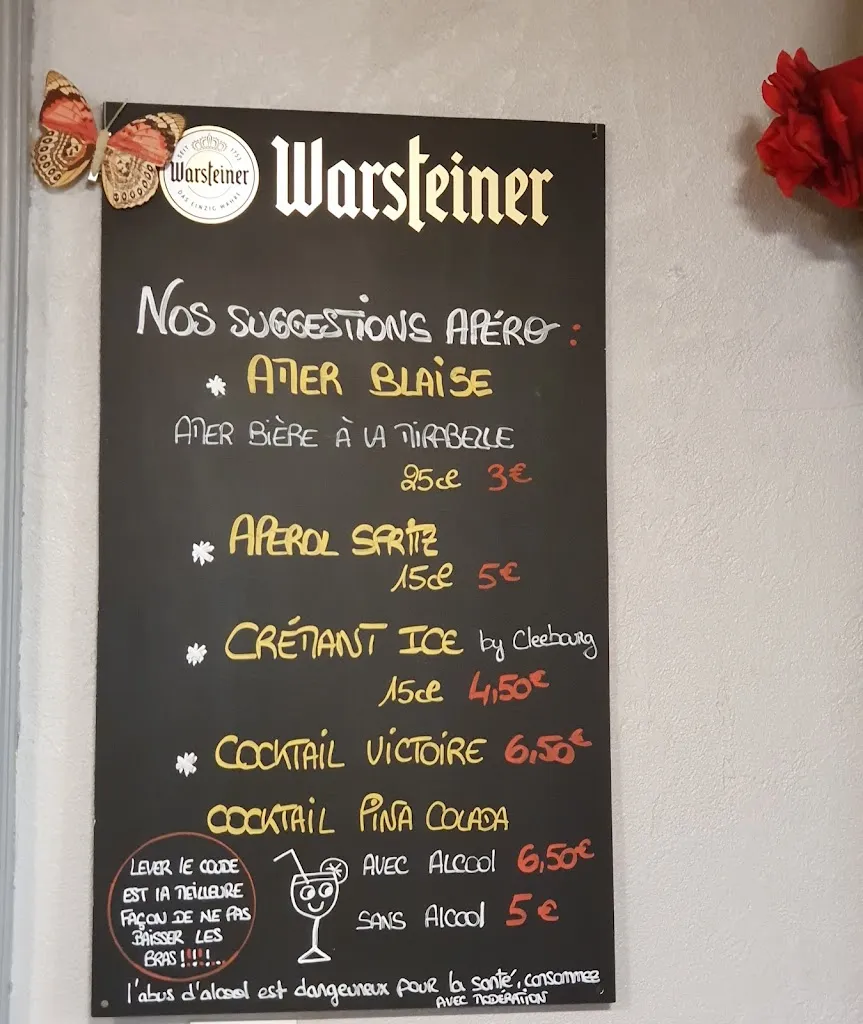 SEIT 1753
Warsteiner
DAS EINZIG WAHRE
Warsteiner
NOS SUGGESTIONS APÉRO :
* AMER BLAISE
AMER BIÈRE À LA MIRABELLE
25cl 3€
* APEROL SPRITZ
15cl 5€
* CRÉMANT ICE by Cleebourg
15cl 4,50€
* COCKTAIL VICTOIRE 6,50€
COCKTAIL PINA COLADA
AVEC ALCOOL 6,50€
SANS Alcool 5€
LEVER LE COUDE
EST LA MEILLEURE
FAÇON DE NE PAS
BAISSER LES
BRAS !!!!..
l'abus d'alcool est dangeureux pour la santé, consommez
AVEC MODÉRATION